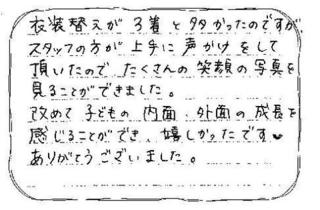 衣装替えが3着と多かったのですが
スタッフの方が上手に声がけをして
頂いたので たくさんの笑顔の写真を
見ることができました。
改めて子どもの内面、外面の成長を
感じることができ、嬉しかったです♥
ありがとうございました。